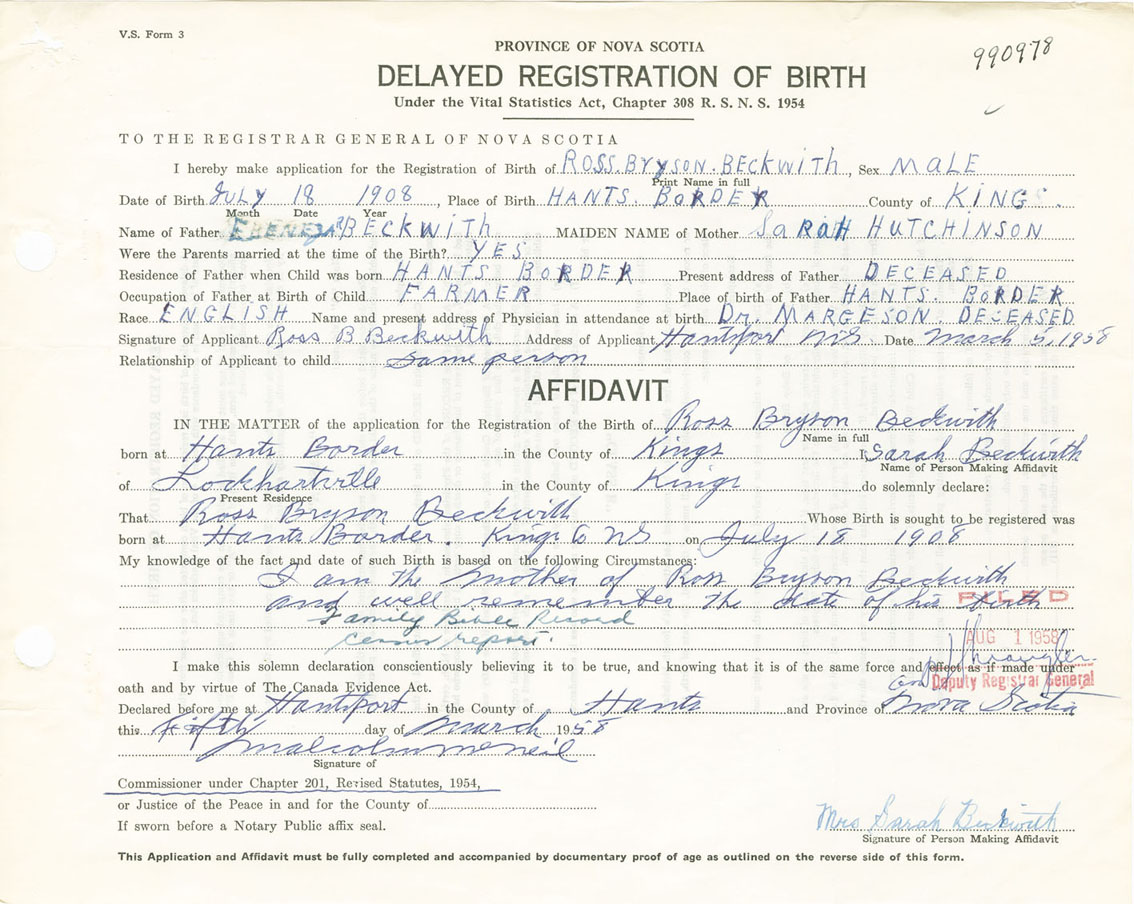 V.S. Form 3
990978
PROVINCE OF NOVA SCOTIA
DELAYED REGISTRATION OF BIRTH
Under the Vital Statistics Act, Chapter 308 R. S. N. S. 1954
TO THE REGISTRAR GENERAL OF NOVA SCOTIA
I hereby make application for the Registration of Birth of ROSS. BRYSON. BECKWITH, Sex MALE
Print Name in full
Date of Birth JULY 18 1908, Place of Birth HANTS. BORDER County of KINGS.
Month Date Year
Name of Father EBENEZAR BECKWITH MAIDEN NAME of Mother SARAH HUTCHINSON
Were the Parents married at the time of the Birth? YES
Residence of Father when Child was born HANTS BORDER Present address of Father DECEASED
Occupation of Father at Birth of Child FARMER Place of birth of Father HANTS. BORDER
Race ENGLISH Name and present address of Physician in attendance at birth Dr. MARGESON. DECEASED
Signature of Applicant Ross B Beckwith Address of Applicant Hantsport N.S. Date March 5, 1958
Relationship of Applicant to child same person
AFFIDAVIT
IN THE MATTER of the application for the Registration of the Birth of Ross Bryson Beckwith
Name in full
born at Hants Border in the County of Kings I Sarah Beckwith
Name of Person Making Affidavit
of Lockhartville in the County of Kings do solemnly declare:
Present Residence
That Ross Bryson Beckwith Whose Birth is sought to be registered was
born at Hants Border. Kings Co NS on July 18 1908
My knowledge of the fact and date of such Birth is based on the following Circumstances:
I am the mother of Ross Bryson Beckwith
and well remember the date of his birth
FILED
Family Bible Record
census report.
AUG 1 1958
I make this solemn declaration conscientiously believing it to be true, and knowing that it is of the same force and effect as if made under
oath and by virtue of The Canada Evidence Act.
Deputy Registrar General
Declared before me at Hantsport in the County of Hants and Province of Nova Scotia
this fifth day of March 1958
Malcolm McNeil
Signature of
Commissioner under Chapter 201, Revised Statutes, 1954,
or Justice of the Peace in and for the County of
If sworn before a Notary Public affix seal.
Mrs Sarah Beckwith
Signature of Person Making Affidavit
This Application and Affidavit must be fully completed and accompanied by documentary proof of age as outlined on the reverse side of this form.